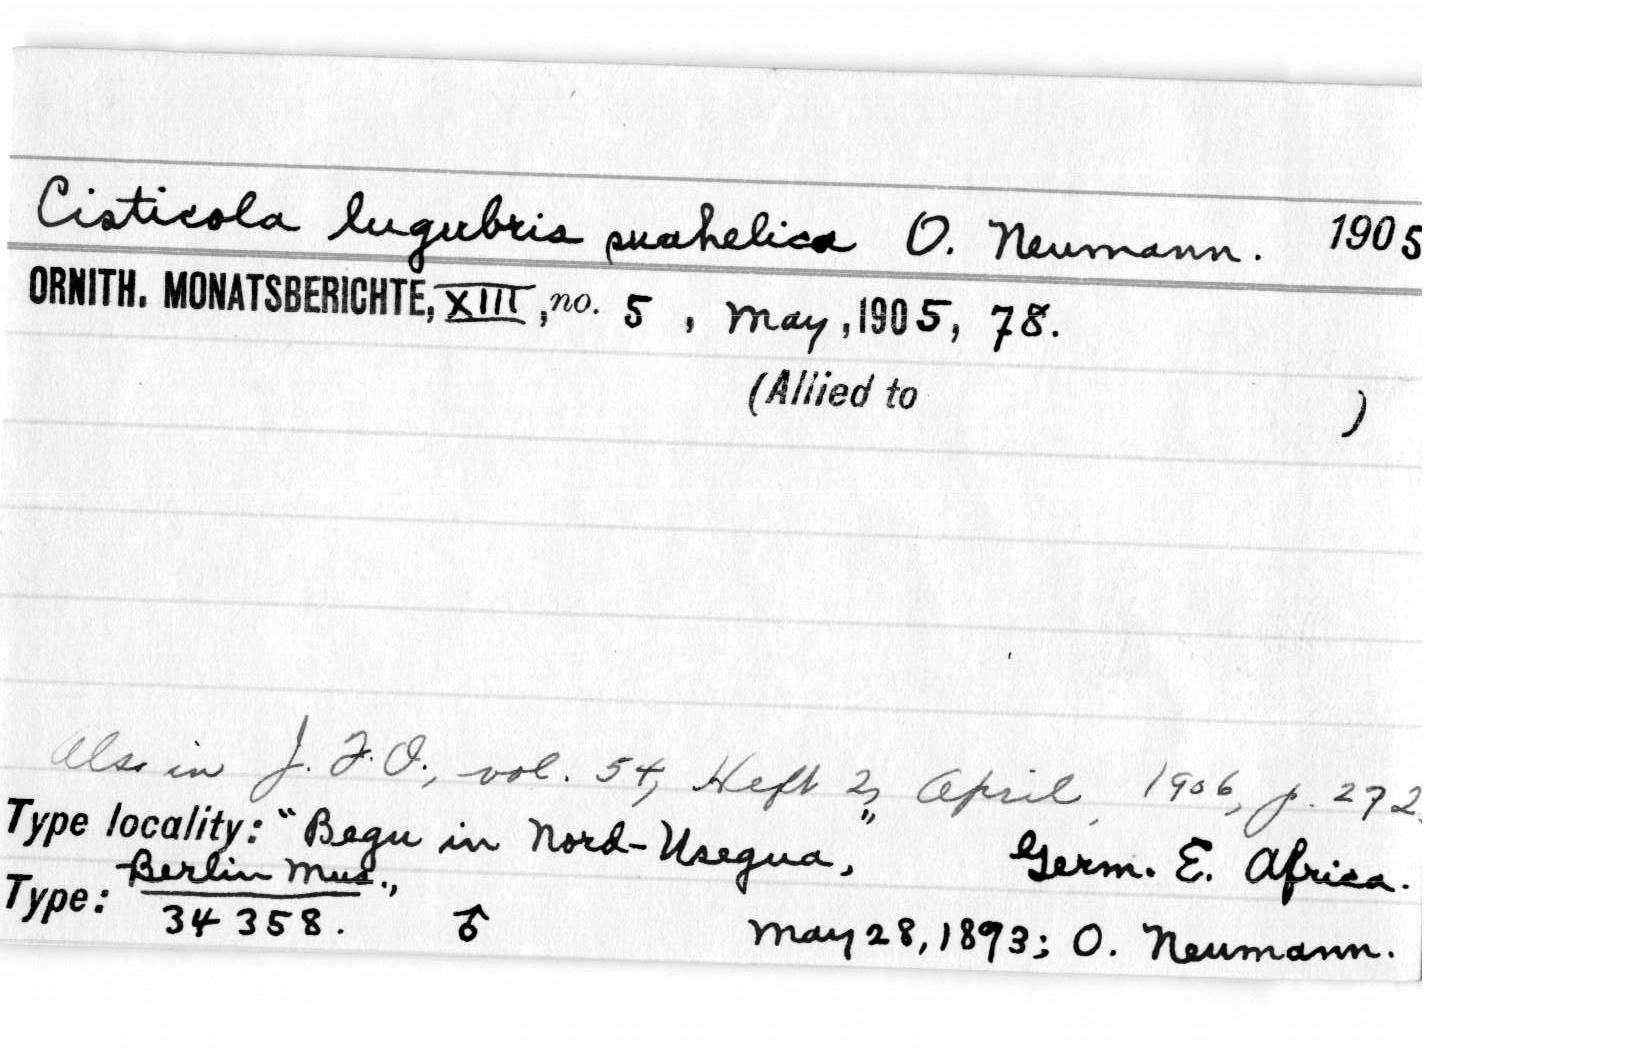 Cisticola lugubris suahelica O. Neumann. 1905
ORNITH. MONATSBERICHTE, XIII, no. 5, May, 1905, 78.
(Allied to )
Also in J.F.O., vol. 54, Heft 2, April, 1906, p. 272.
Type locality: "Begu in Nord-Usegua," Germ. E. Africa.
Type: Berlin Mus., 34358. ♂ May 28, 1893; O. Neumann.